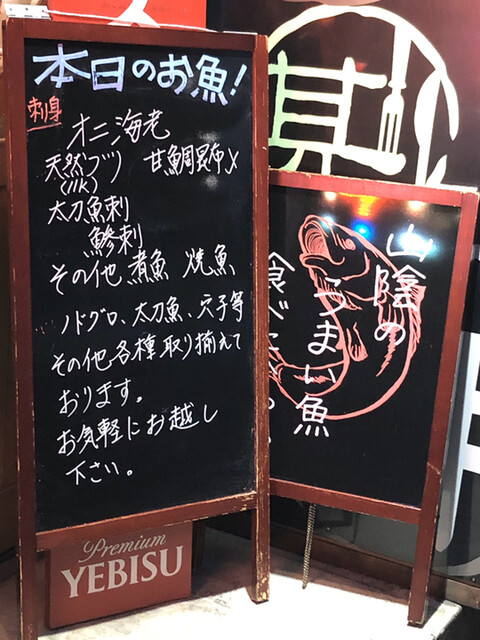 本日のお魚!
刺身
オニ海老
天然ブリ 甘鯛昆布〆
(11K)
太刀魚刺
鯵刺
その他煮魚 焼魚
ノドグロ、太刀魚、穴子等
その他各種取り揃えて
おります。
お気軽にお越し
下さい。
Premium
YEBISU
山陰の
うまい魚
食べに